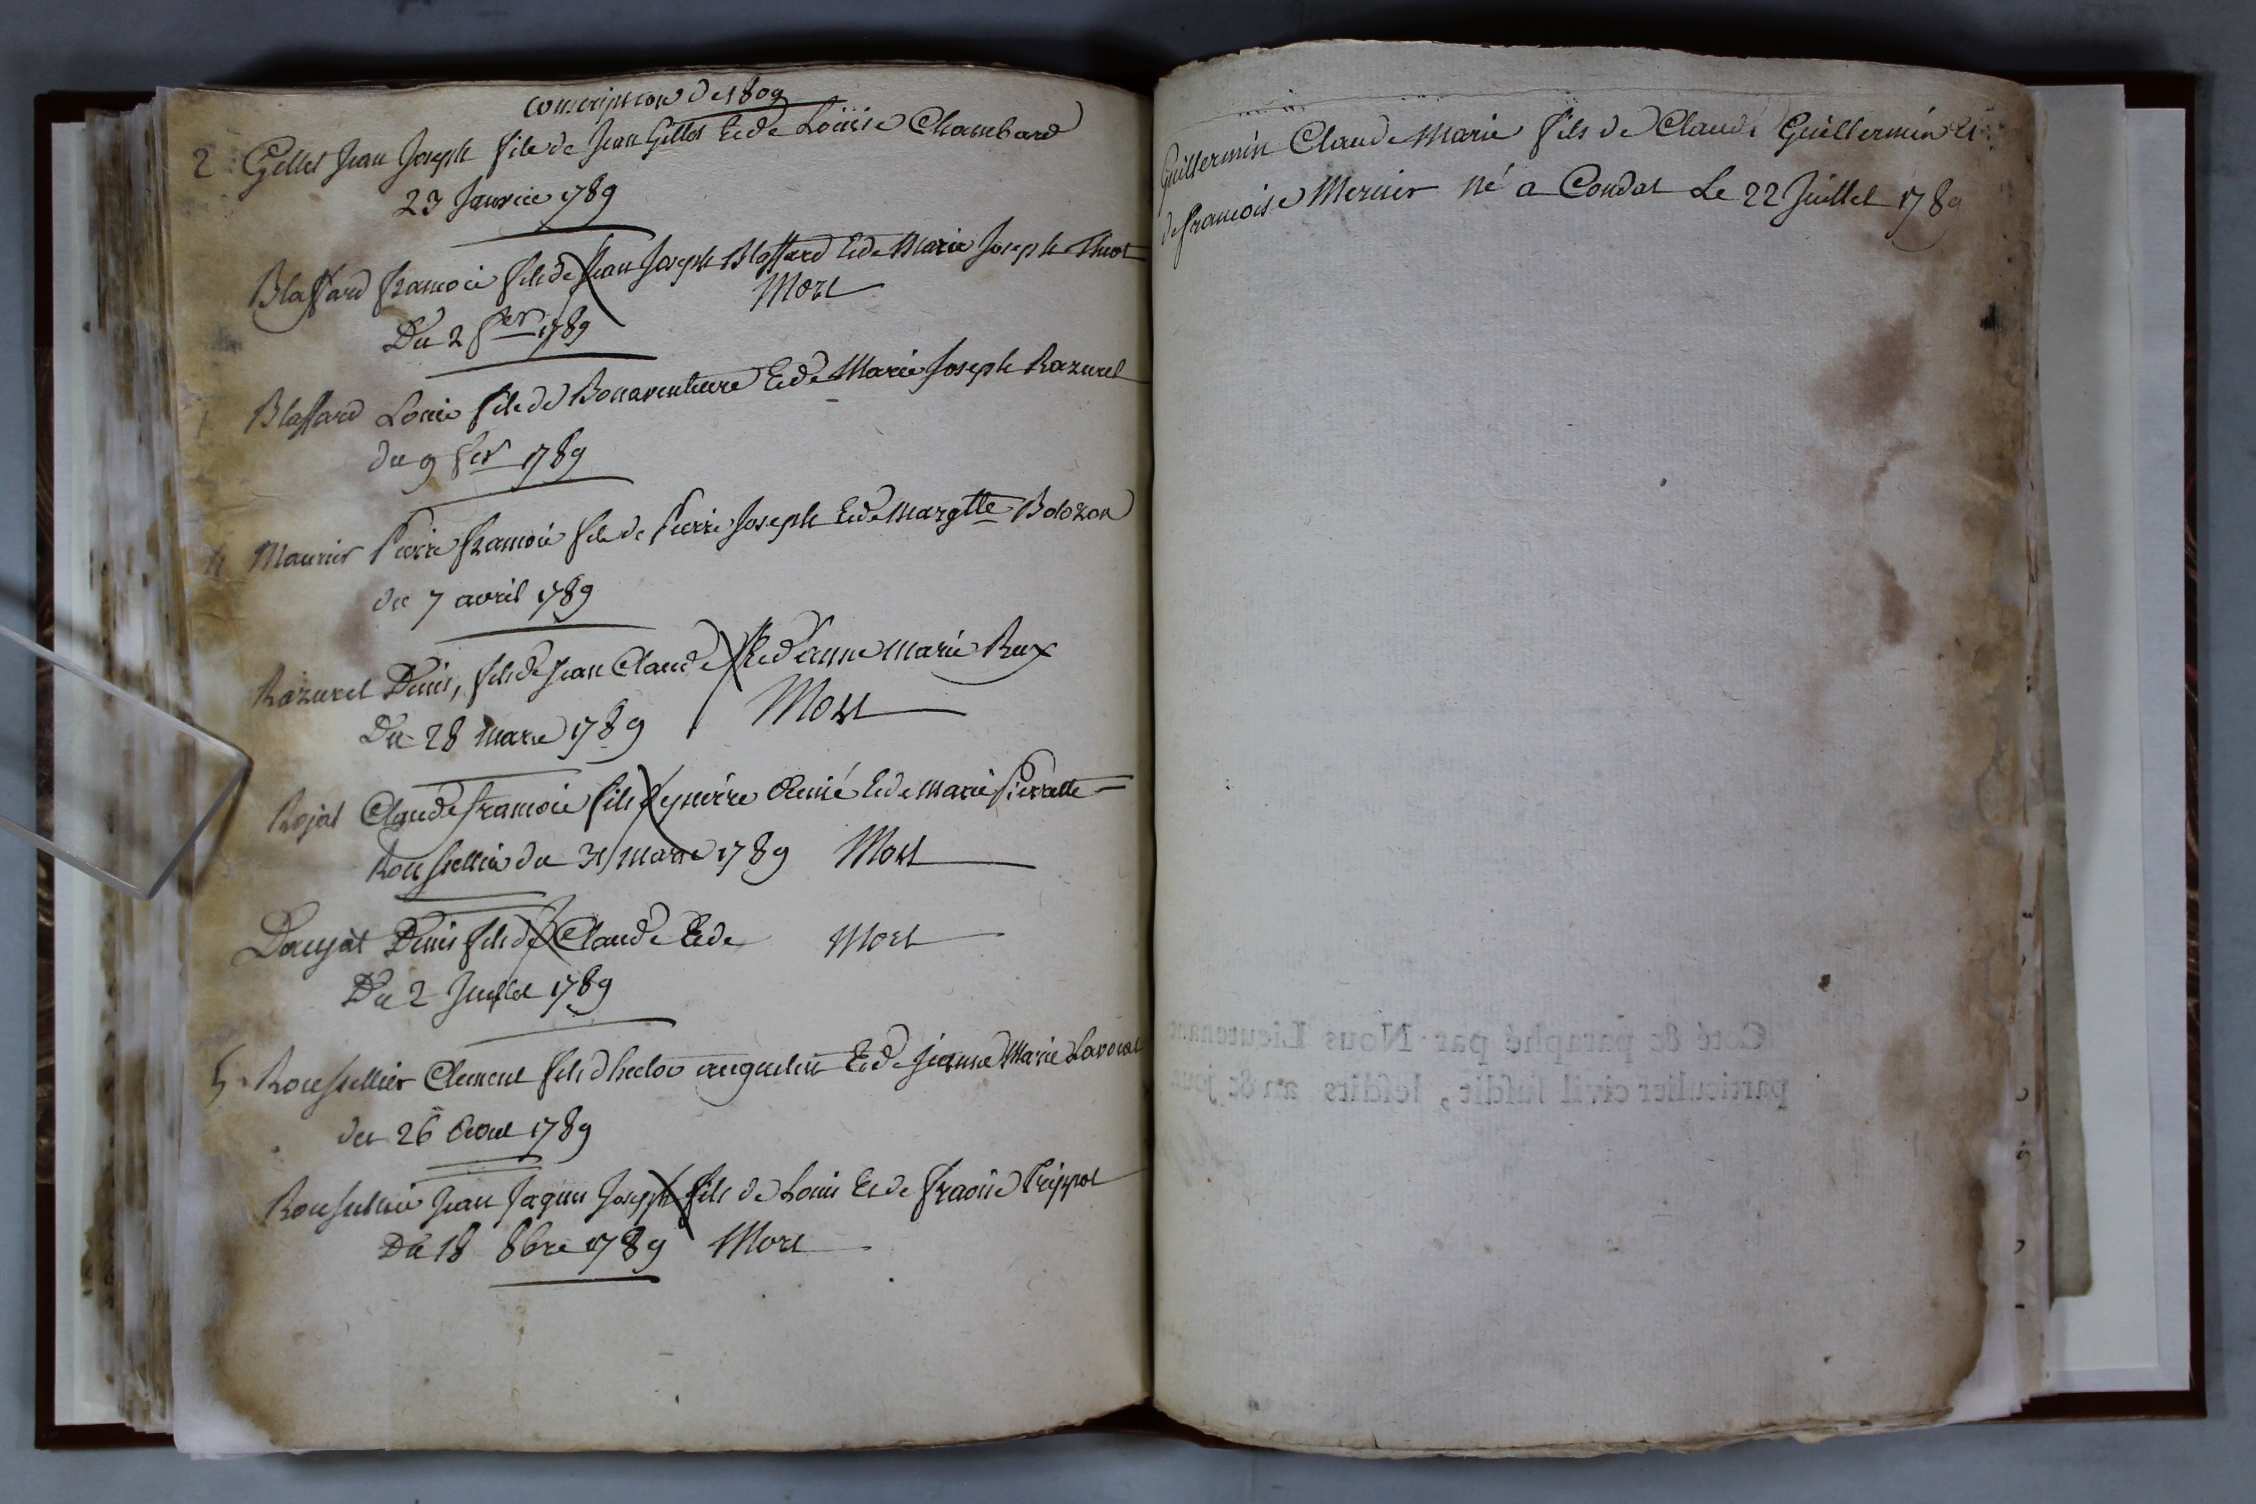 conscription de 1809
2 Gillet Jean Joseph fils de Jean Gillet et de Louise Chambard
23 Janvier 1789
Blaffard francois fils de Jean Joseph Blaffard et de Marie Joseph
Mort
Du 2 fer 1789
Blaffard Louis fils de Bonaventure et de Marie Joseph Razurel
du 9 fer 1789
Maunier Pierre francois fils de Pierre Joseph et de margtte Bolozon
du 7 avril 1789
Razurel Denis, fils de Jean Claude et d'anne marie Rux
Du 28 mars 1789 Mort
Rojat Claude francois fils de pierre et de marie Pierrette
Roussellier du 31 mars 1789 Mort
Daujat Denis fils de Claude et de Mort
Du 2 Juillet 1789
5 Roussellier Clement fils d'hector augustin et de jeanne Marie
du 26 1789
Roussellier Jean Jaques Joseph fils de Louis et de
Du 18 8bre 1789 Mort
Guillermin Claude Marie fils de Claude Guillermin et
de francoise Mercier né a Condat Le 22 Juillet 1789
Coté & paraphé par Nous Lieutenant
particulier civil susdit, lesdits an & jour